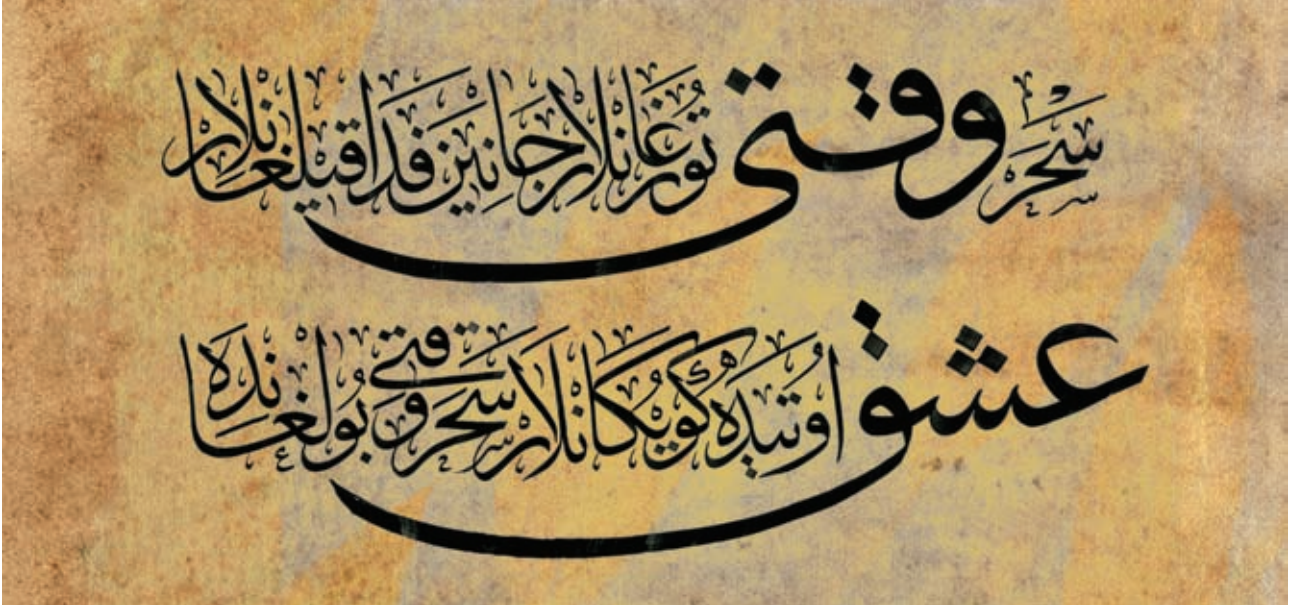 سحر وقتی تورغانلار جانین فدا قیلغانلار
عشق اوتیده کویگانلار سحر وقتی بولغانده